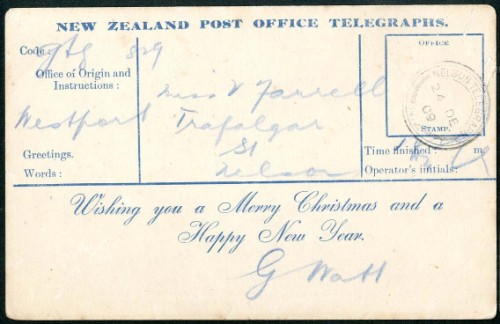 NEW ZEALAND POST OFFICE TELEGRAPHS.
Code: 829
Office of Origin and
Instructions:
Westport
Greetings.
Words:
Miss V Farrell
Trafalgar
St
Nelson
OFFICE
NELSON TELEGRAPH
24 DE
09
STAMP.
Time finished: m
Operator's initials:
Wishing you a Merry Christmas and a
Happy New Year.
G Watt